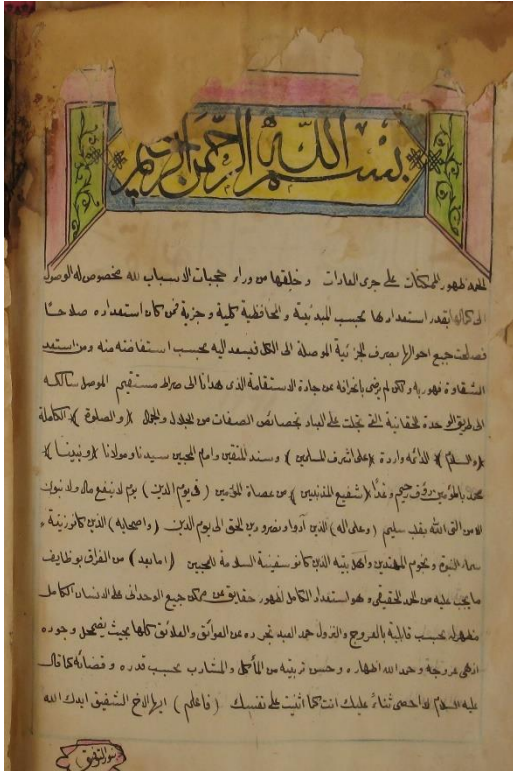 بسم الله الرحمن الرحيم
ظهور الممكنات على جرى العادات و خلقها من وراء حجبات الاسباب لله مخصوص له الوصول
الى كمالها بقدر استعدادها بحسب المبدئية و الحافظية كلية و جزئية فمن كان استعداده صلاحا
فصلحت جميع احوالها بصرف الجزئية الموصلة الى الكل فيسعد اليه بحسب استفاضته منه ومن استعد
الشقاوة فهو به ولكن لم يرض بانحرافه عن جادة الاستقامة الذى هدانا الى صراط مستقيم الموصل سالكه
الى طريق الوحدة الحقانية التى تجلت على العباد بخصائص الصفات من الجلال والجمال ﴿والصلوة﴾ الكاملة
﴿والسلام﴾ الدائمة واردة ﴿على اشرف المسلمين﴾ وسند المتقين وامام المحبين سيدنا ومولانا ﴿ونبينا﴾
محمد بالمؤمنين رؤف رحيم وغدا ﴿شفيع المذنبين﴾ من عصاة المؤمنين (فى يوم الدين) يوم لا ينفع مال ولا بنون
الا من اتى الله بقلب سليم (وعلى اله) الذين آووا ونصروا دين الحق الى يوم الدين (واصحابه) الذين كانوا زينة
سماء النبوة ونجوم المهتدين واهل بيته الذين كانوا سفينة السلامة للمحبين (اما بعد) من الفراق بوظايف
ما يجب عليه من الحمد الحقيقى وهو استعداد الكامل لظهور حقايق من ممكن جميع الوحدانى على الانسان الكامل
مظهر له بحسب قابلية بالعروج والنزول حمد العبد تجرده عن العوائق والعلائق كلها بحيث يضمحل وجوده
ازهى عروجه وحمد الله اظهاره وحسن تربيته من المأكل والمشارب بحسب قدره وقضائه كما قال
عليه السلام لا احصى ثناء عليك انت كما اثنيت على نفسك (فاعلم) ايها الاخ الشفيق ايدك الله
بنور التوفيق